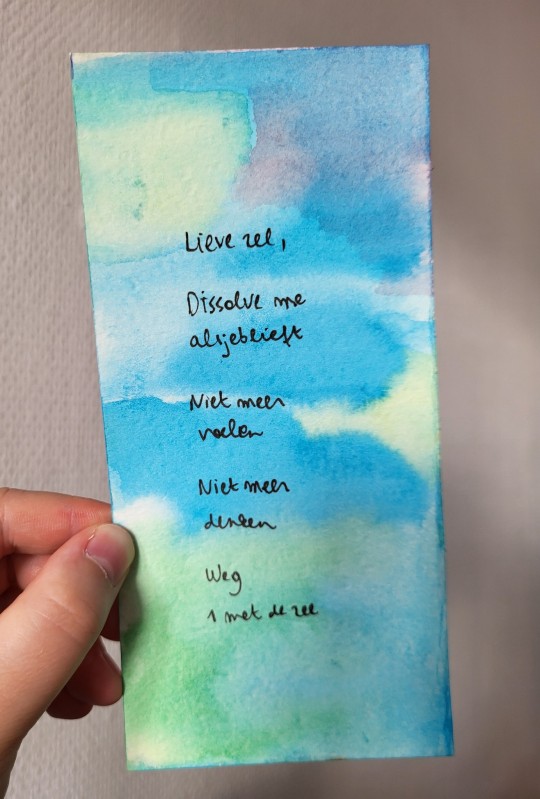 Lieve zee,
Dissolve me
alsjeblieft
Niet meer
voelen
Niet meer
denken
Weg
1 met de zee